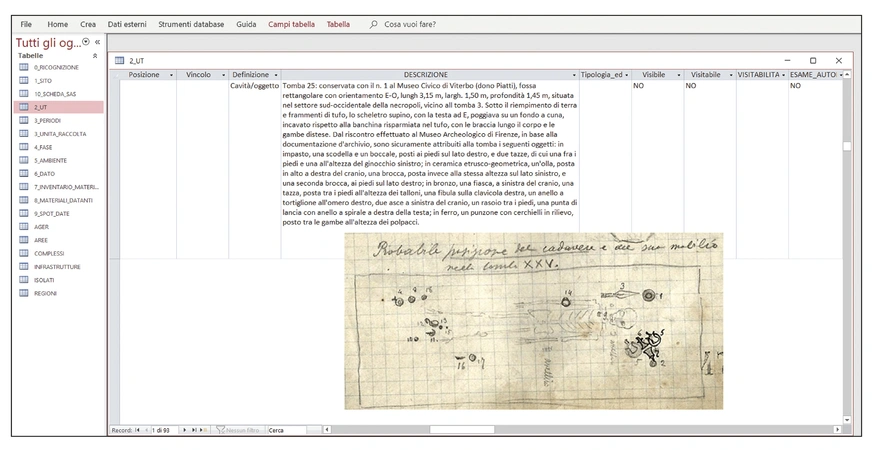 File Home Crea Dati esterni Strumenti database Guida Campi tabella Tabella Cosa vuoi fare?
Tutti gli og... «
Tabelle
0_RICOGNIZIONE
1_SITO
10_SCHEDA_SAS
2_UT
3_PERIODI
3_UNITA_RACCOLTA
4_FASE
5_AMBIENTE
6_DATO
7_INVENTARIO_MATERI...
8_MATERIALI_DATANTI
9_SPOT_DATE
AGER
AREE
COMPLESSI
INFRASTRUTTURE
ISOLATI
REGIONI
2_UT
Posizione Vincolo Definizione DESCRIZIONE Tipologia_ed Visibile Visitabile VISITABILITA ESAME_AUTO
Cavità/oggetto Tomba 25: conservata con il n. 1 al Museo Civico di Viterbo (dono Piatti), fossa NO NO NO
rettangolare con orientamento E-O, lungh 3,15 m, largh. 1,50 m, profondità 1,45 m, situata
nel settore sud-occidentale della necropoli, vicino all tomba 3. Sotto il riempimento di terra
e frammenti di tufo, lo scheletro supino, con la testa ad E, poggiava su un fondo a cuna,
incavato rispetto alla banchina risparmiata nel tufo, con le braccia lungo il corpo e le
gambe distese. Dal riscontro effettuato al Museo Archeologico di Firenze, in base alla
documentazione d'archivio, sono sicuramente attribuiti alla tomba i seguenti oggetti: in
impasto, una scodella e un boccale, posti ai piedi sul lato destro, e due tazze, di cui una fra i
piedi e una all'altezza del ginocchio sinistro; in ceramica etrusco-geometrica, un'olla, posta
in alto a destra del cranio, una brocca, posta invece alla stessa altezza sul lato sinistro, e
una seconda brocca, ai piedi sul lato destro; in bronzo, una fiasca, a sinistra del cranio, una
tazza, posta tra i piedi all'altezza dei talloni, una fibula sulla clavicola destra, un anello a
tortiglione all'omero destro, due asce a sinistra del cranio, un rasoio tra i piedi, una punta di
lancia con anello a spirale a destra della testa; in ferro, un punzone con cerchielli in rilievo,
posto tra le gambe all'altezza dei polpacci.
Probabile posizione del cadavere e del suo mobilio
nella tomba XXV.
Record: 1 di 93 Nessun filtro Cerca